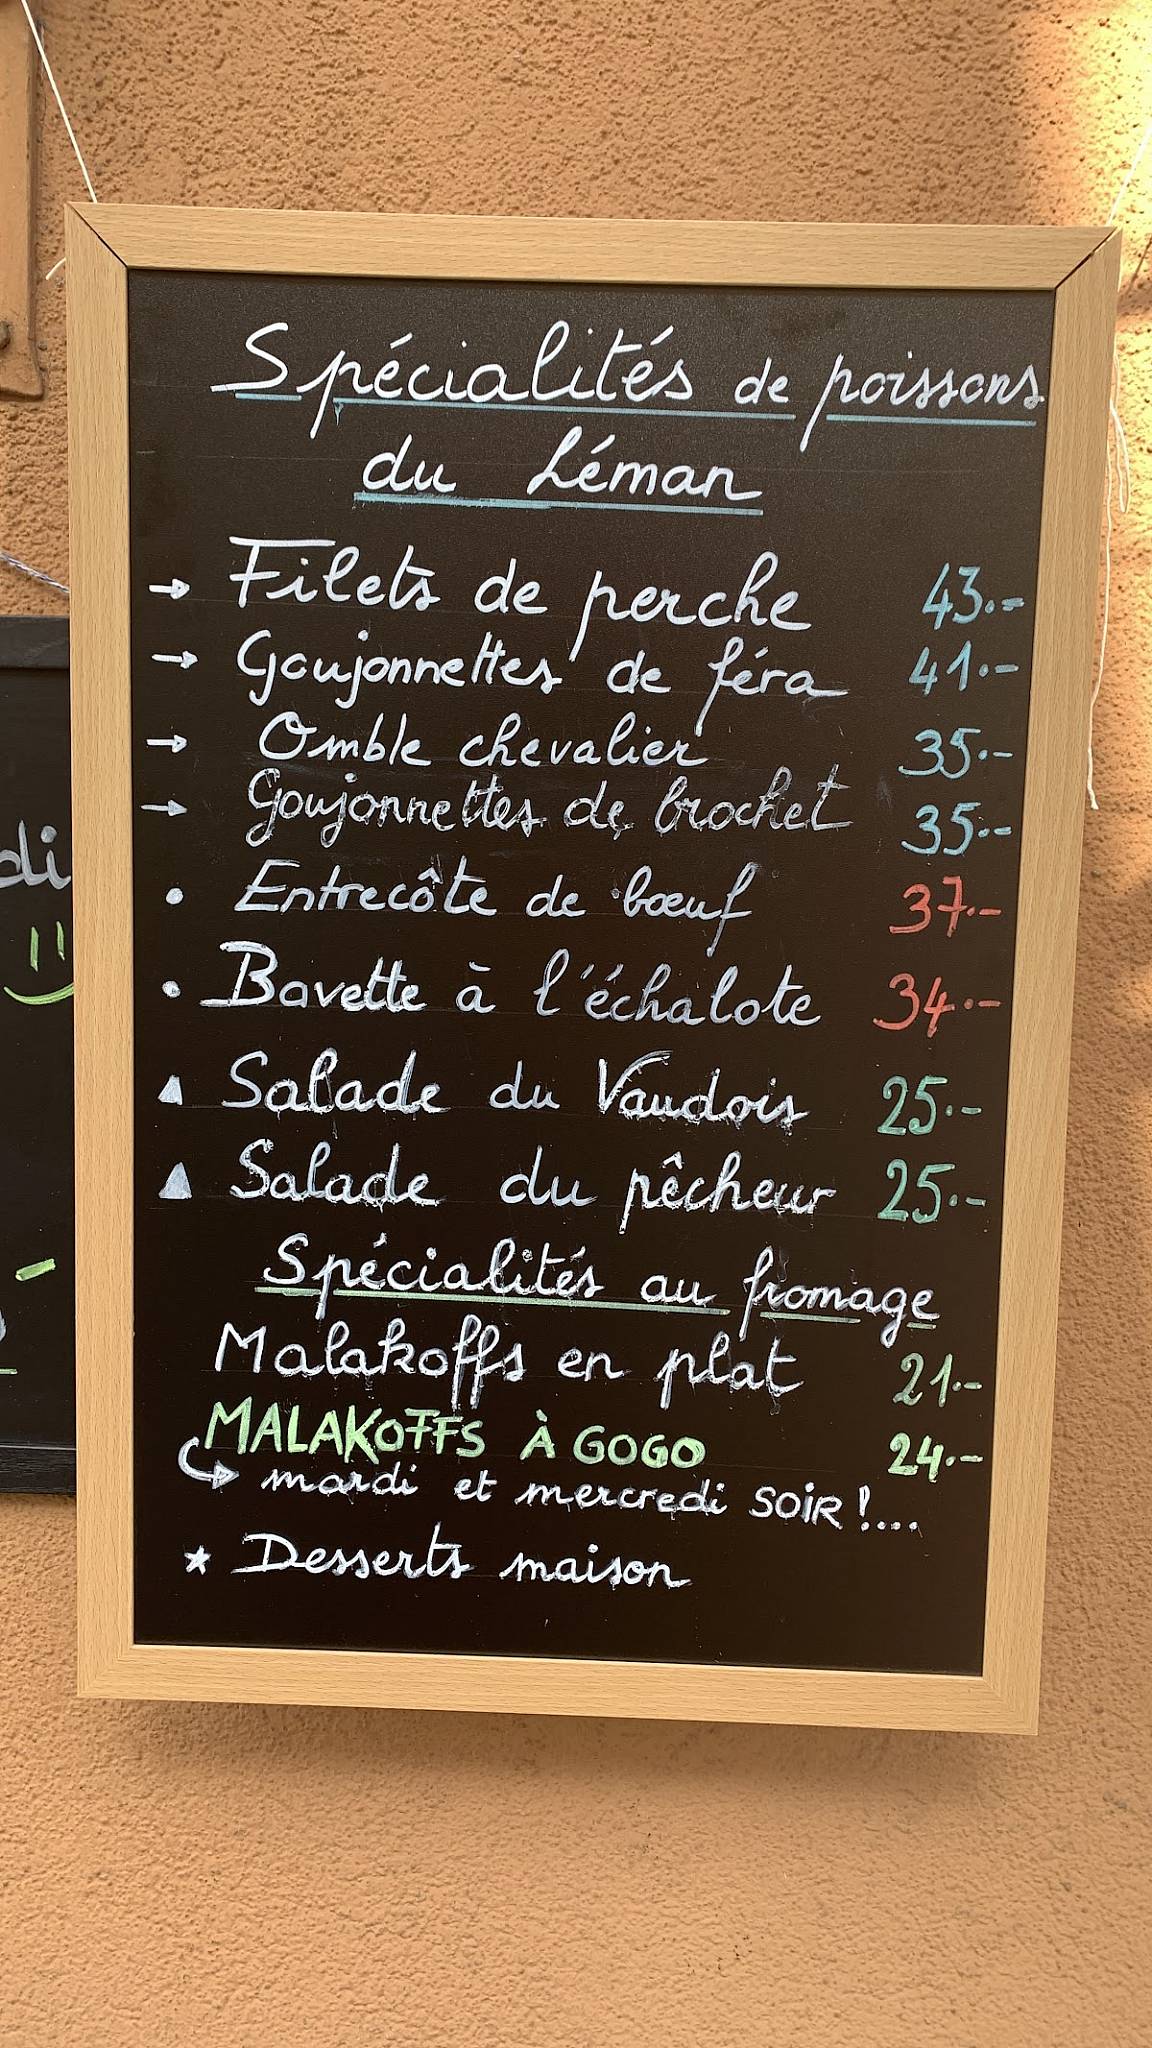 Spécialités de poissons
du Léman
→ Filets de perche 43.-
→ Goujonnettes de féra 41.-
→ Omble chevalier 35.-
→ Goujonnettes de brochet 35.-
• Entrecôte de bœuf 37.-
• Bavette à l'échalote 34.-
▲ Salade du Vaudois 25.-
▲ Salade du pêcheur 25.-
Spécialités au fromage
Malakoffs en plat 21.-
MALAKOFFS À GOGO 24.-
↪ mardi et mercredi SOIR !....
★ Desserts maison
di